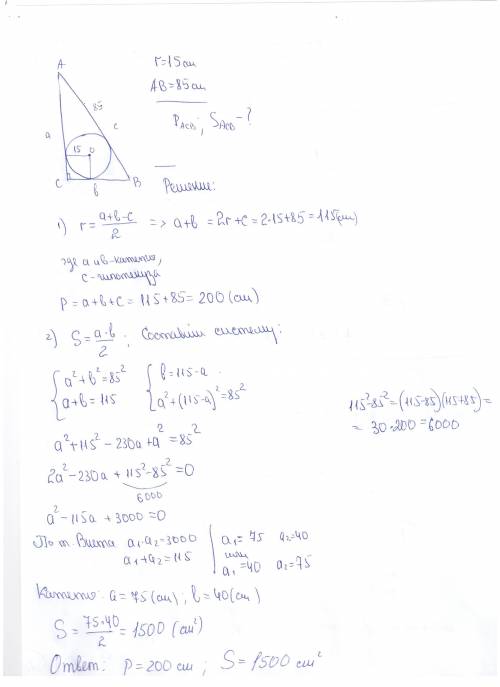 r=15см
AB=85см
P_ACB; S_ACB-?
A
85
a
c
15
O
C
b
B
Решение:
1) r = (a+b-c)/2 => a+b = 2r+c = 2·15+85 = 115(см)
где a и b-катеты,
c-гипотенуза
P = a+b+c = 115+85 = 200 (см)
2) S = a·b/2; Составим систему:
{ a²+b²=85² { b=115-a
{ a+b=115 { a²+(115-a)²=85²
115²-85²=(115-85)(115+85)=
= 30·200=6000
a²+115²-230a+a²=85²
2a²-230a+115²-85²=0
6000
a²-115a+3000=0
По т. Виета a₁·a₂=3000 | a₁=75 a₂=40
a₁+a₂=115 | или
a₁=40 a₂=75
Катеты: a=75(см); b=40(см)
S = 75·40/2 = 1500 (см²)
Ответ: P=200см; S=1500см²